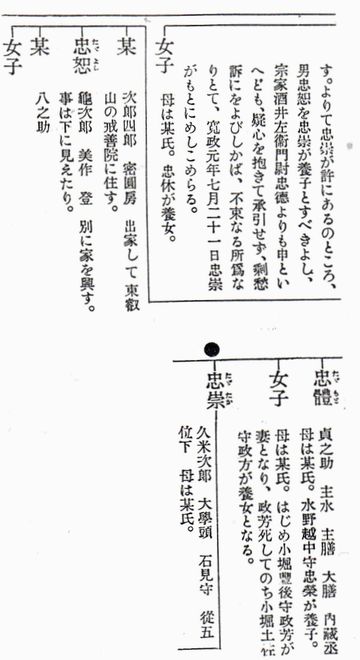 す。よりて忠崇が許にあるのところ、
男忠恕を忠崇が養子とすべきよし、
宗家酒井左衞門尉忠德よりも申とい
へども、疑心を抱きて承引せず、剩愁
訴にをよびしかば、不束なる所爲な
りとて、寬政元年七月二十一日忠崇
がもとにめしこめらる。
女子
母は某氏。忠休が養女。
某
次郎四郎 密圓房 出家して東叡
山の戒善院に住す。
忠恕
たゞ よし
龜次郎 美作 登 別に家を興す。
事は下に見えたり。
某
八之助
女子
忠體
たゞ もと
貞之助 主水 主膳 大膳 內藏丞
母は某氏。水野越中守忠榮が養子。
女子
母は某氏。はじめ小堀豐後守政芳が
妻となり、政芳死してのち小堀土佐
守政方が養女となる。
忠崇
たゞ たか
久米次郎 大學頭 石見守 從五
位下 母は某氏。